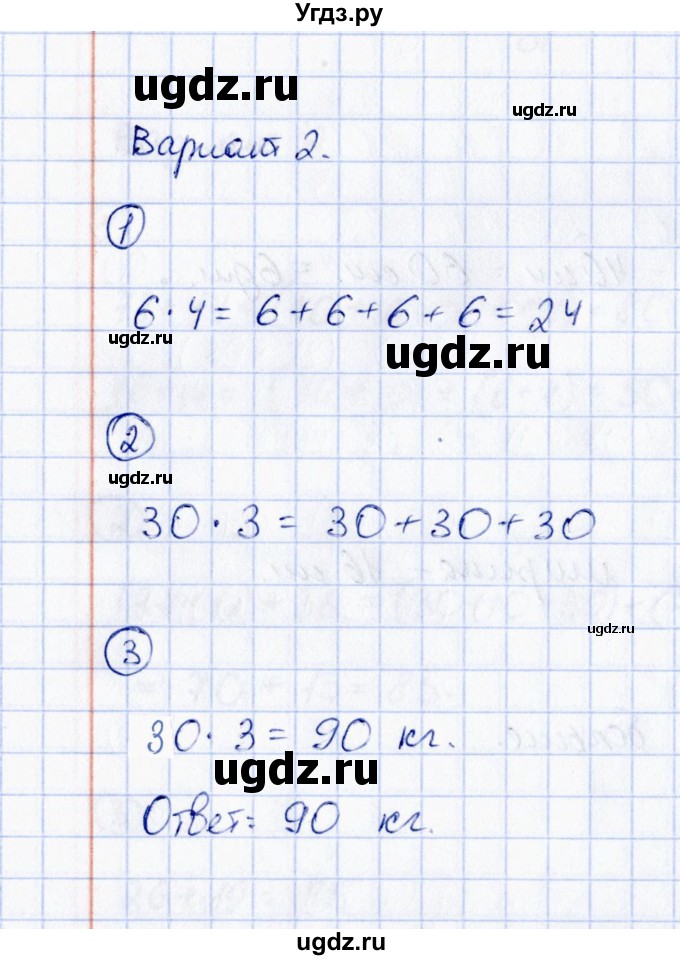 Угдз.ру
ugdz.ru
ugdz.ru
Вариант 2.
1
6 · 4 = 6 + 6 + 6 + 6 = 24
ugdz.ru
ugdz.ru
2
ugdz.ru
30 · 3 = 30 + 30 + 30
ugdz.ru
3
30 · 3 = 90 кг.
ugdz.ru
Ответ: 90 кг.
ugdz.ru